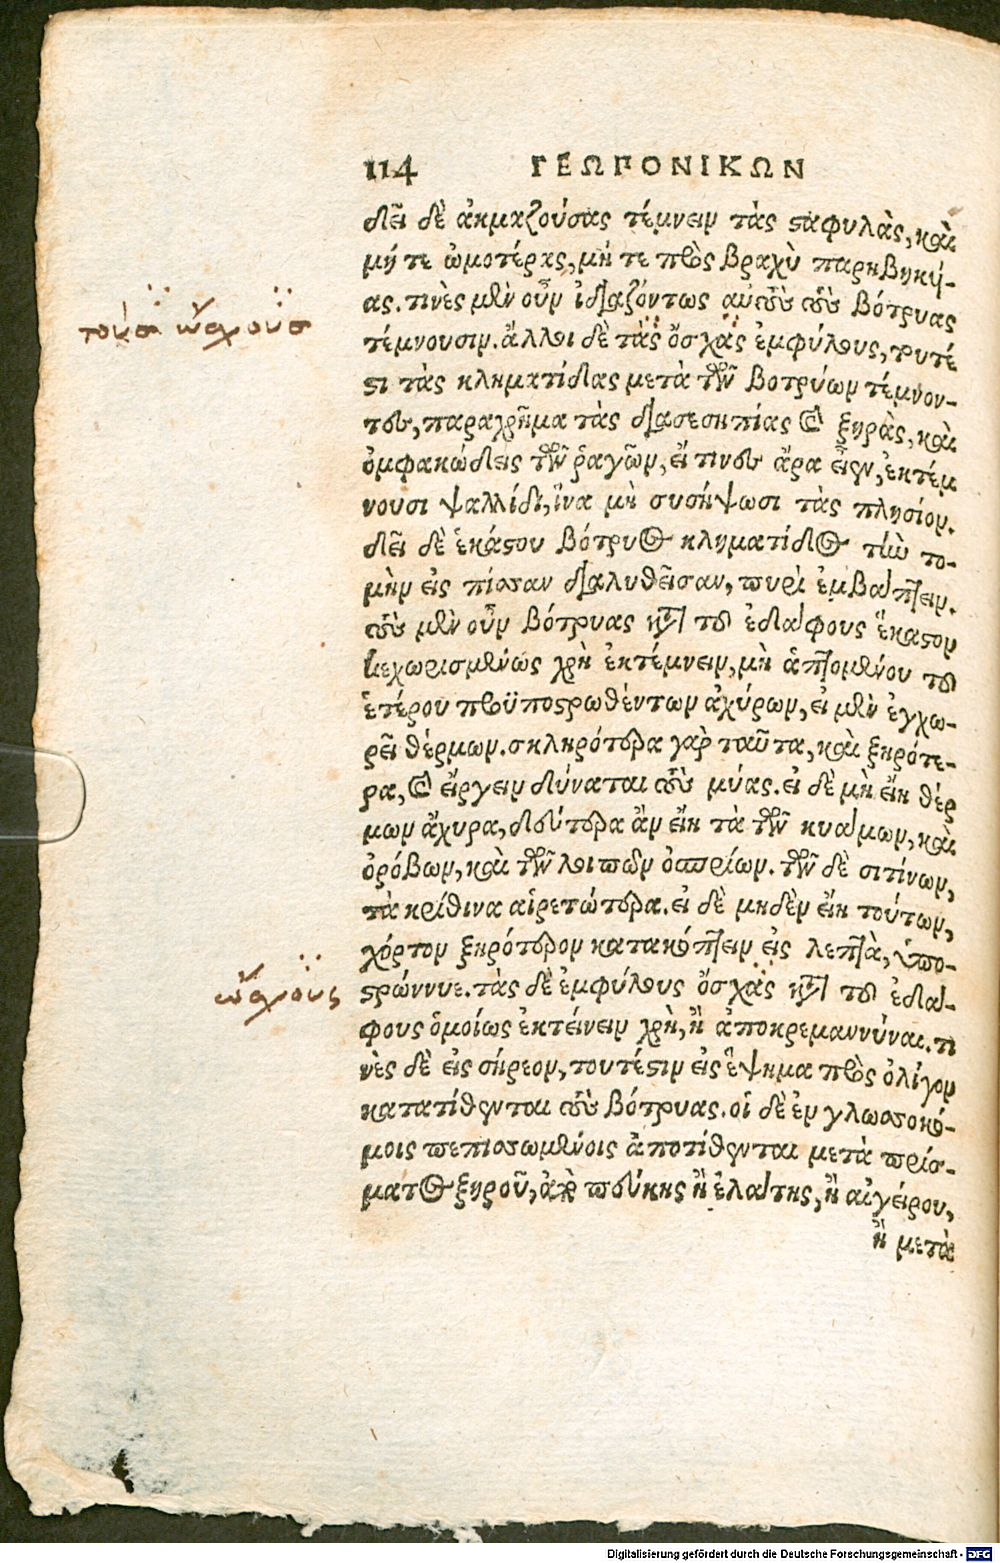 114 ΓΕΩΠΟΝΙΚΩΝ
δεῖ δὲ ἀκμαζούσας τέμνειν τὰς ϛαφυλὰς, καὶ
μή τε ὠμοτέρας, μή τε πρὸς βραχὺ παρηβηκύ-
ας. τινὲς μὲν οὖν ἰδιαζόντως αὐτοὺς τοὺς βότρυας
τούσ ὤσχουσ
τέμνουσιν. ἄλλοι δὲ τὰς ὄσχὰς ἐμφύλους, τουτέ
ϛι τὰς κληματίδας μετὰ τῶν βοτρύων τέμνον-
τες, παραχρῆμα τὰς διασεσηπίας καὶ ξηρὰς, καὶ
ὀμφακώδεις τῶν ῥαγῶν, εἴ τινες ἄρα εἶεν, ἐκτέμ
νουσι ψαλλίδι, ἵνα μὴ συσήψωσι τὰς πλησίον.
δεῖ δὲ ἑκάϛου βότρυος κληματίδος τὴν το-
μὴν εἰς πίσσαν διαλυθεῖσαν, πυρὶ ἐμβάπτειν.
τοὺς μὲν οὖν βότρυας κατὰ τοῦ ἐδάφους ἕκαϛον
κεχωρισμένως χρὴ ἐκτέμνειν, μὴ ἁπτομένου τοῦ
ἑτέρου προϋποϛρωθέντων ἀχύρων, εἰ μὲν ἐγχω-
ρεῖ θέρμων. σκληρότερα γὰρ ταῦτα, καὶ ξηρότε-
ρα, καὶ εἴργειν δύναται τοὺς μύας. εἰ δὲ μὴ εἴη θέρ
μων ἄχυρα, δεύτερα ἂν εἴη τὰ τῶν κυάμων, καὶ
ὀρόβων, καὶ τῶν λοιπῶν ὀσπρίων. τῶν δὲ σιτίνων,
τὰ κρίθινα αἱρετώτερα. εἰ δὲ μηδὲν εἴη τούτων,
χόρτον ξηρότερον κατακόπτειν εἰς λεπτὰ, ὑπο-
ὤσχους
ϛρώννυε. τὰς δὲ ἐμφύλους ὄσχὰς κατὰ τοῦ ἐδά-
φους ὁμοίως ἐκτείνειν χρὴ, ἢ ἀποκρεμαννύναι. τι
νὲς δὲ εἰς σήρεον, τουτέϛιν εἰς ἕψημα πρὸς ὀλίγον
κατατίθενται τοὺς βότρυας. οἱ δὲ ἐν γλωσσοκό-
μοις πεπισσωμένοις ἀποτίθενται μετὰ πρίσ-
ματος ξηροῦ, ἀπὸ πεύκης ἢ ἐλάτης, ἢ αἰγείρου,
ἢ μετὰ
Digitalisierung gefördert durch die Deutsche Forschungsgemeinschaft - DFG